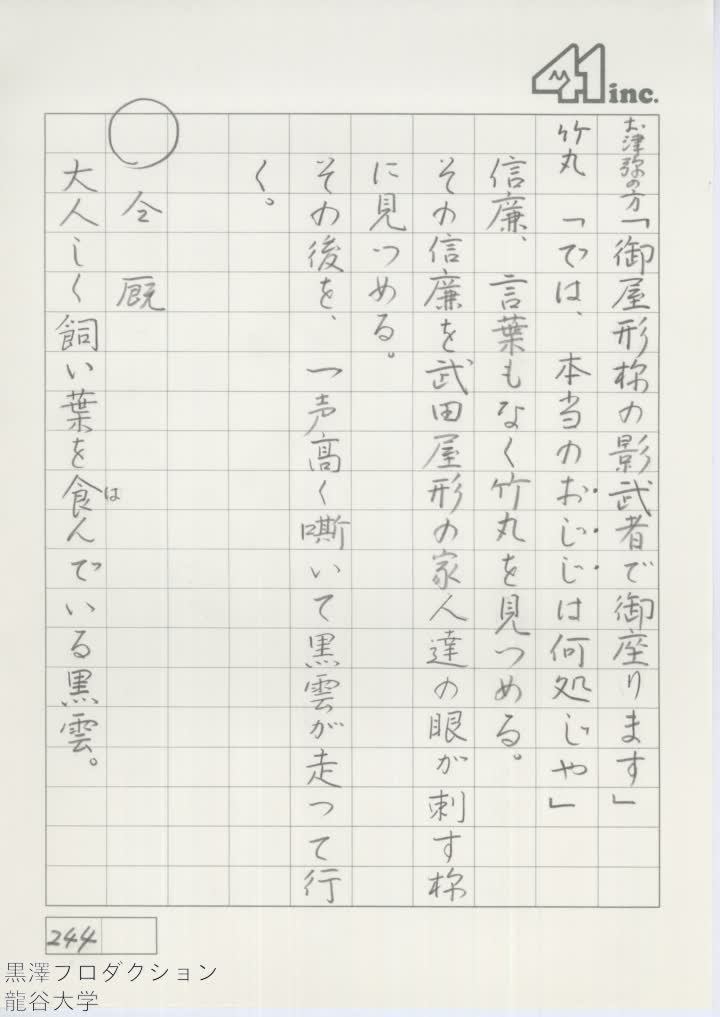 41 inc.
お津弥の方「御屋形様の影武者で御座ります」
竹丸　「では、本当のおじじは何処じや」
信廉、言葉もなく竹丸を見つめる。
その信廉を武田屋形の家人達の眼が刺す様
に見つめる。
その後を、一声高く嘶いて黒雲が走って行
く。
仝　厩
大人しく飼い葉を食んでいる黒雲。
は
244
黒澤プロダクション
龍谷大学